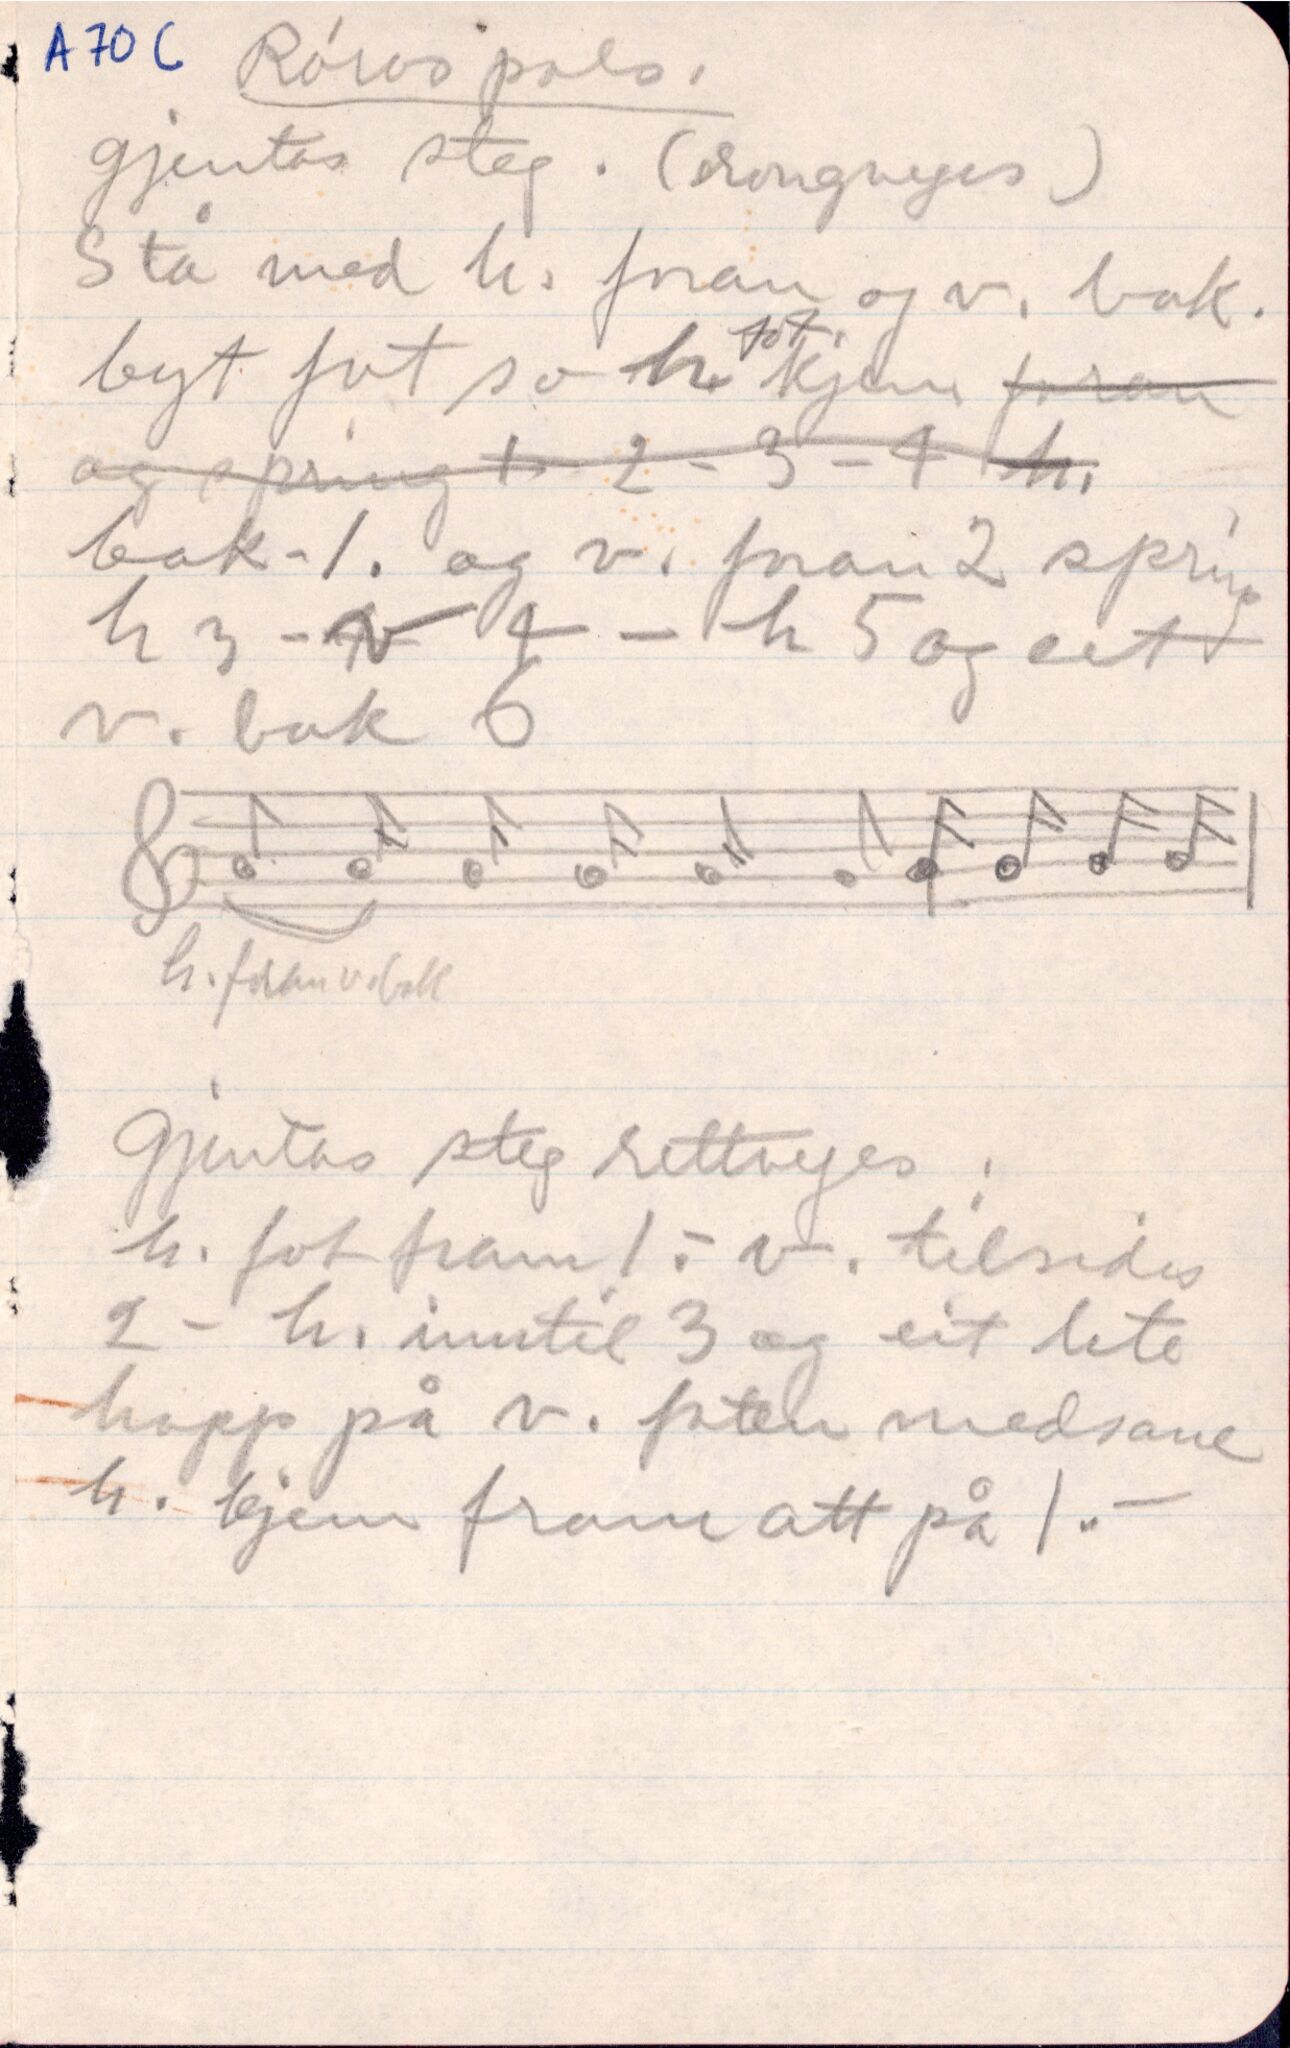 A 70 C
Róros pols.
gjentas steg. (rongveges)
Stå med h. foran og v. bak.
byt fot so h. fot. kjem foran
og spring 1 2 - 3 - 4 h.
bak - 1. og v. foran 2 spring
h 3 - v 4 - h 5 og eit
v. bak 6
h. foran v. bak
Gjentas steg rettveges.
h. fot fram 1. - v. tilsides
2 - h. inntil 3 og eit lite
hopp på v. foten medsame
h. kjem fram att på 1. -